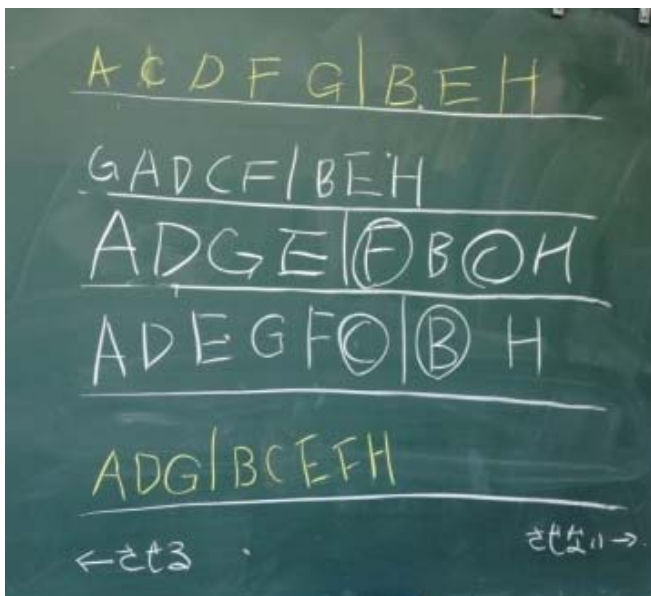 A C D F G | B E H
G A D C F | B E H
A D G E | F B C H
A D E G F C | B H
A D G | B C E F H
←させる させない→